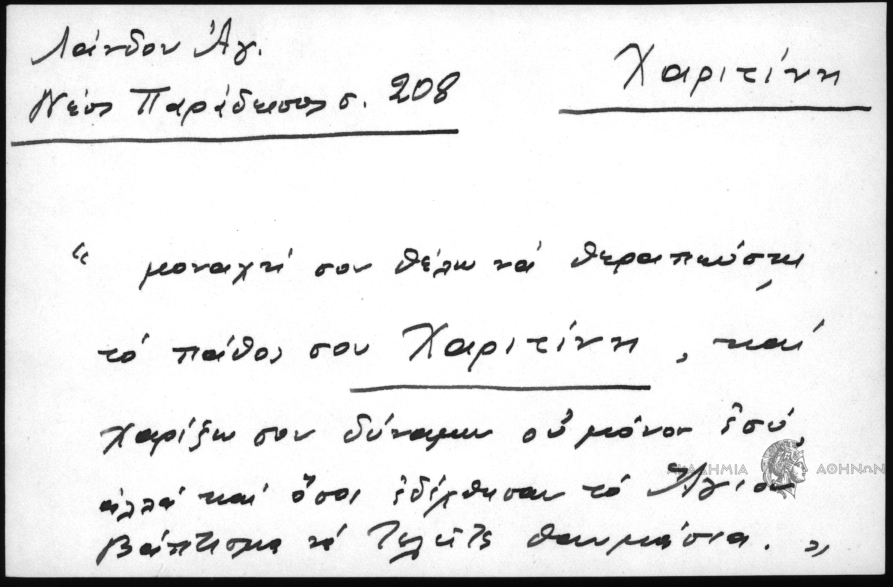 Λάνδου Ἁγ.
Νέος Παράδεισος σ. 208
Χαριτίνη
“ μοναχή σου θέλω νά θεραπεύσῃ
τό πάθος σου Χαριτίνη, καί
χαρίζω σου δύναμιν οὐ μόνον ἐσύ,
ἀλλά καί ὅσοι ἐδέχθησαν τό Ἅγιον
Βάπτισμα νά Τελεῖτε θαυμάσια. „
ΑΚΑΔΗΜΙΑ ΑΘΗΝΩΝ